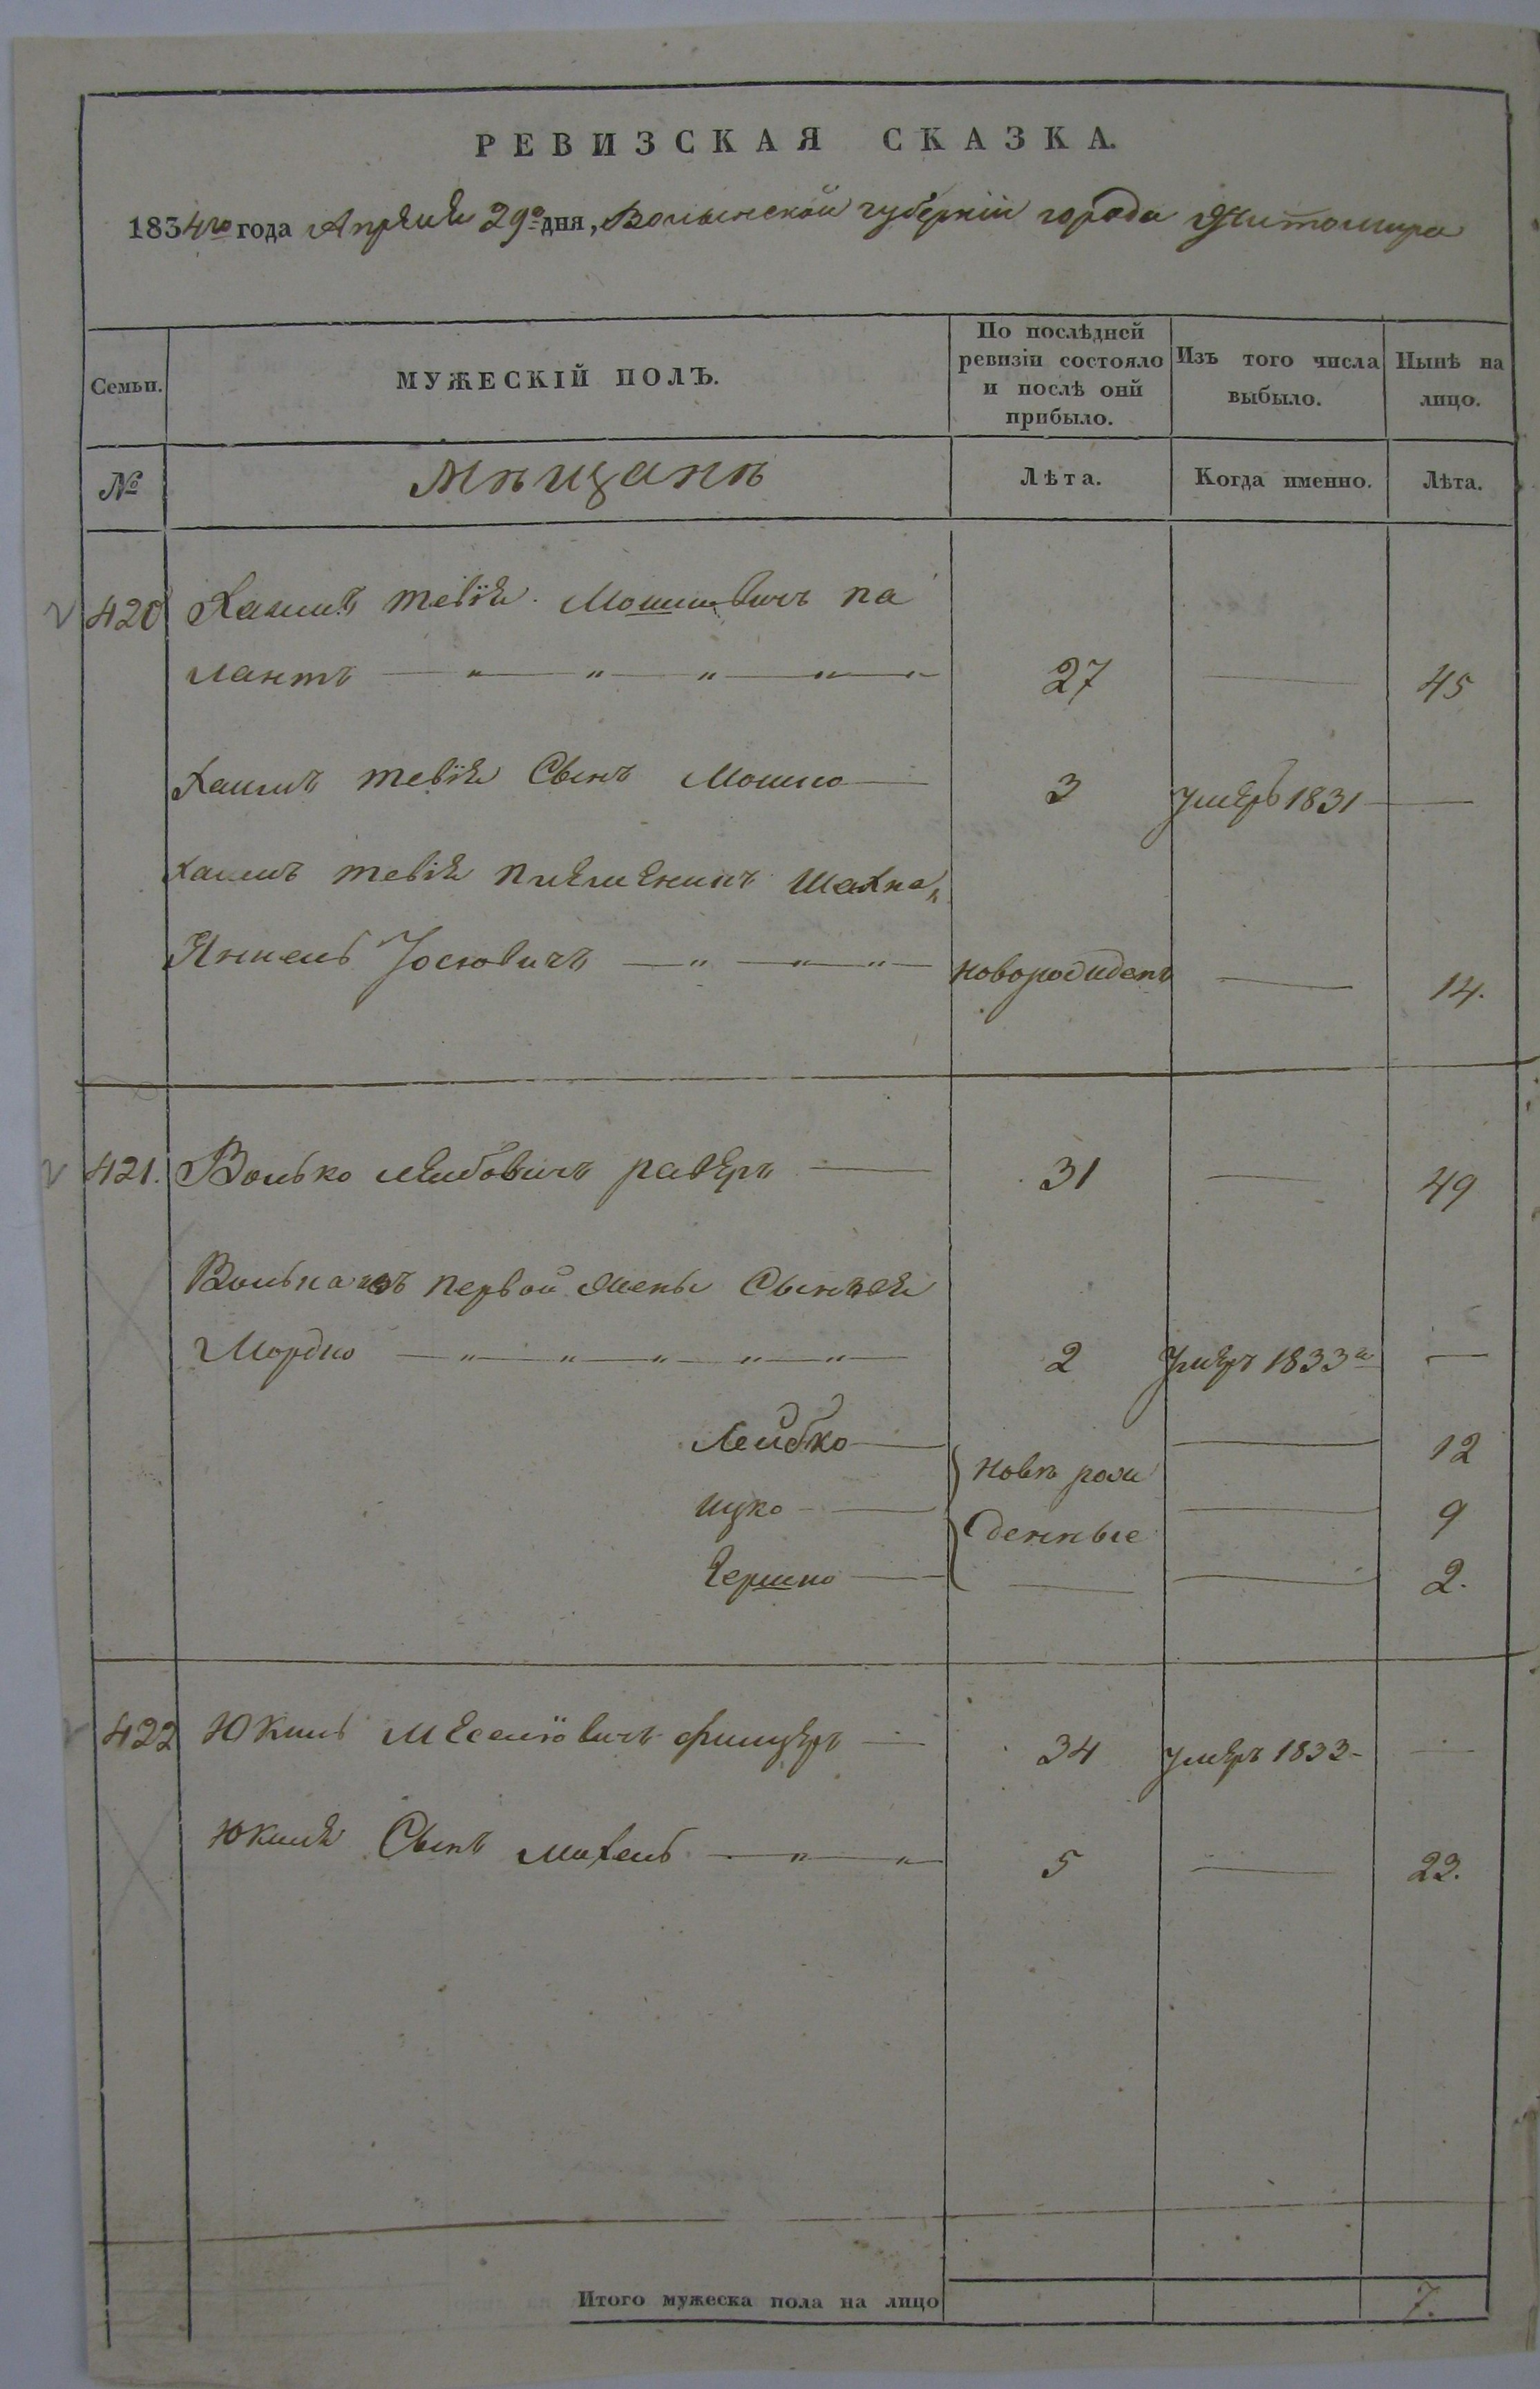 РЕВИЗСКАЯ СКАЗКА.
1834го года Апреля 29о дня, Волынской губернiи города Житомира
Семьи.
МУЖЕСКIЙ ПОЛЪ.
По послѣдней
ревизiи состояло
и послѣ онй
прибыло.
Изъ того числа
выбыло.
Нынѣ на
лицо.
№
Мѣщанѣ
Лѣта.
Когда именно.
Лѣта.
420 Хаимъ тевiя Мошковичъ па
лантъ 27 45
Хаимъ тевiя Сынъ Мошко 3 умеръ 1831
Хаимъ тевiя племеникъ Шахна
Янкель Iосювичъ новорожденъ 14.
421. Волько Лейбовичъ 31 49
Волька изъ первой жены Сыновя
Мордко 2 умеръ 1833
Лейбко 12
новъ рож
Ицко 9
денные
Гершко 2.
422 Юкель фишеръ 34 умеръ 1833
Юкеля Сынъ Михель 5 23.
Итого мужеска пола на лицо 7.